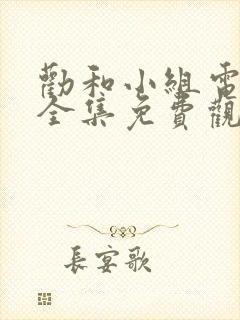 勸和小組電
全集免費觀
長宴歌